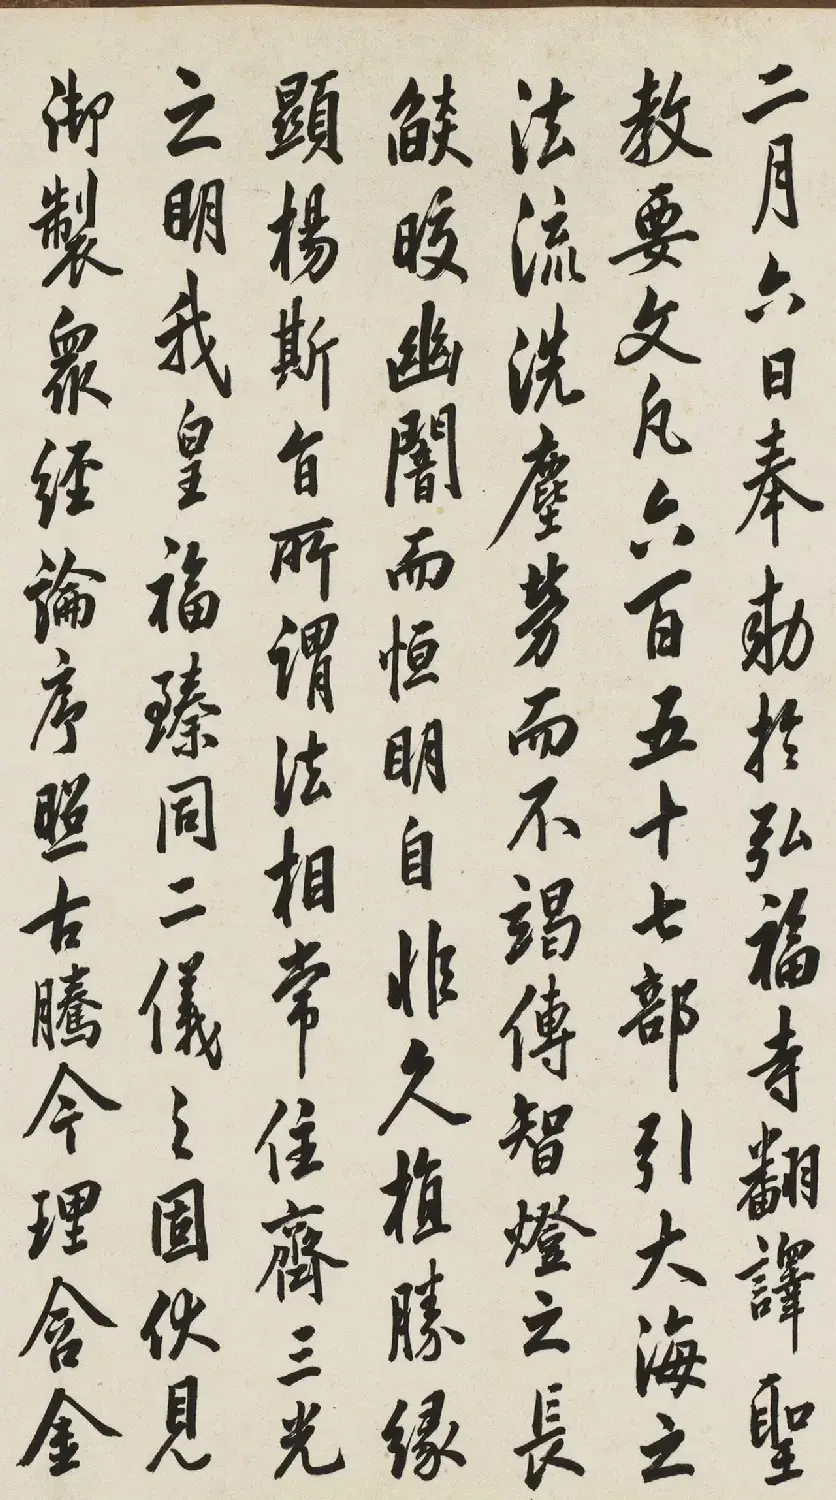 二月六日奉勅於弘福寺翻譯聖
教要文凡六百五十七部引大海之
法流洗塵勞而不竭傳智燈之長
燄皎幽闇而恒明自非久植勝緣
顯楊斯旨所謂法相常住齊三光
之明我皇福臻同二儀之固伏見
御製眾經論序照古騰今理含金